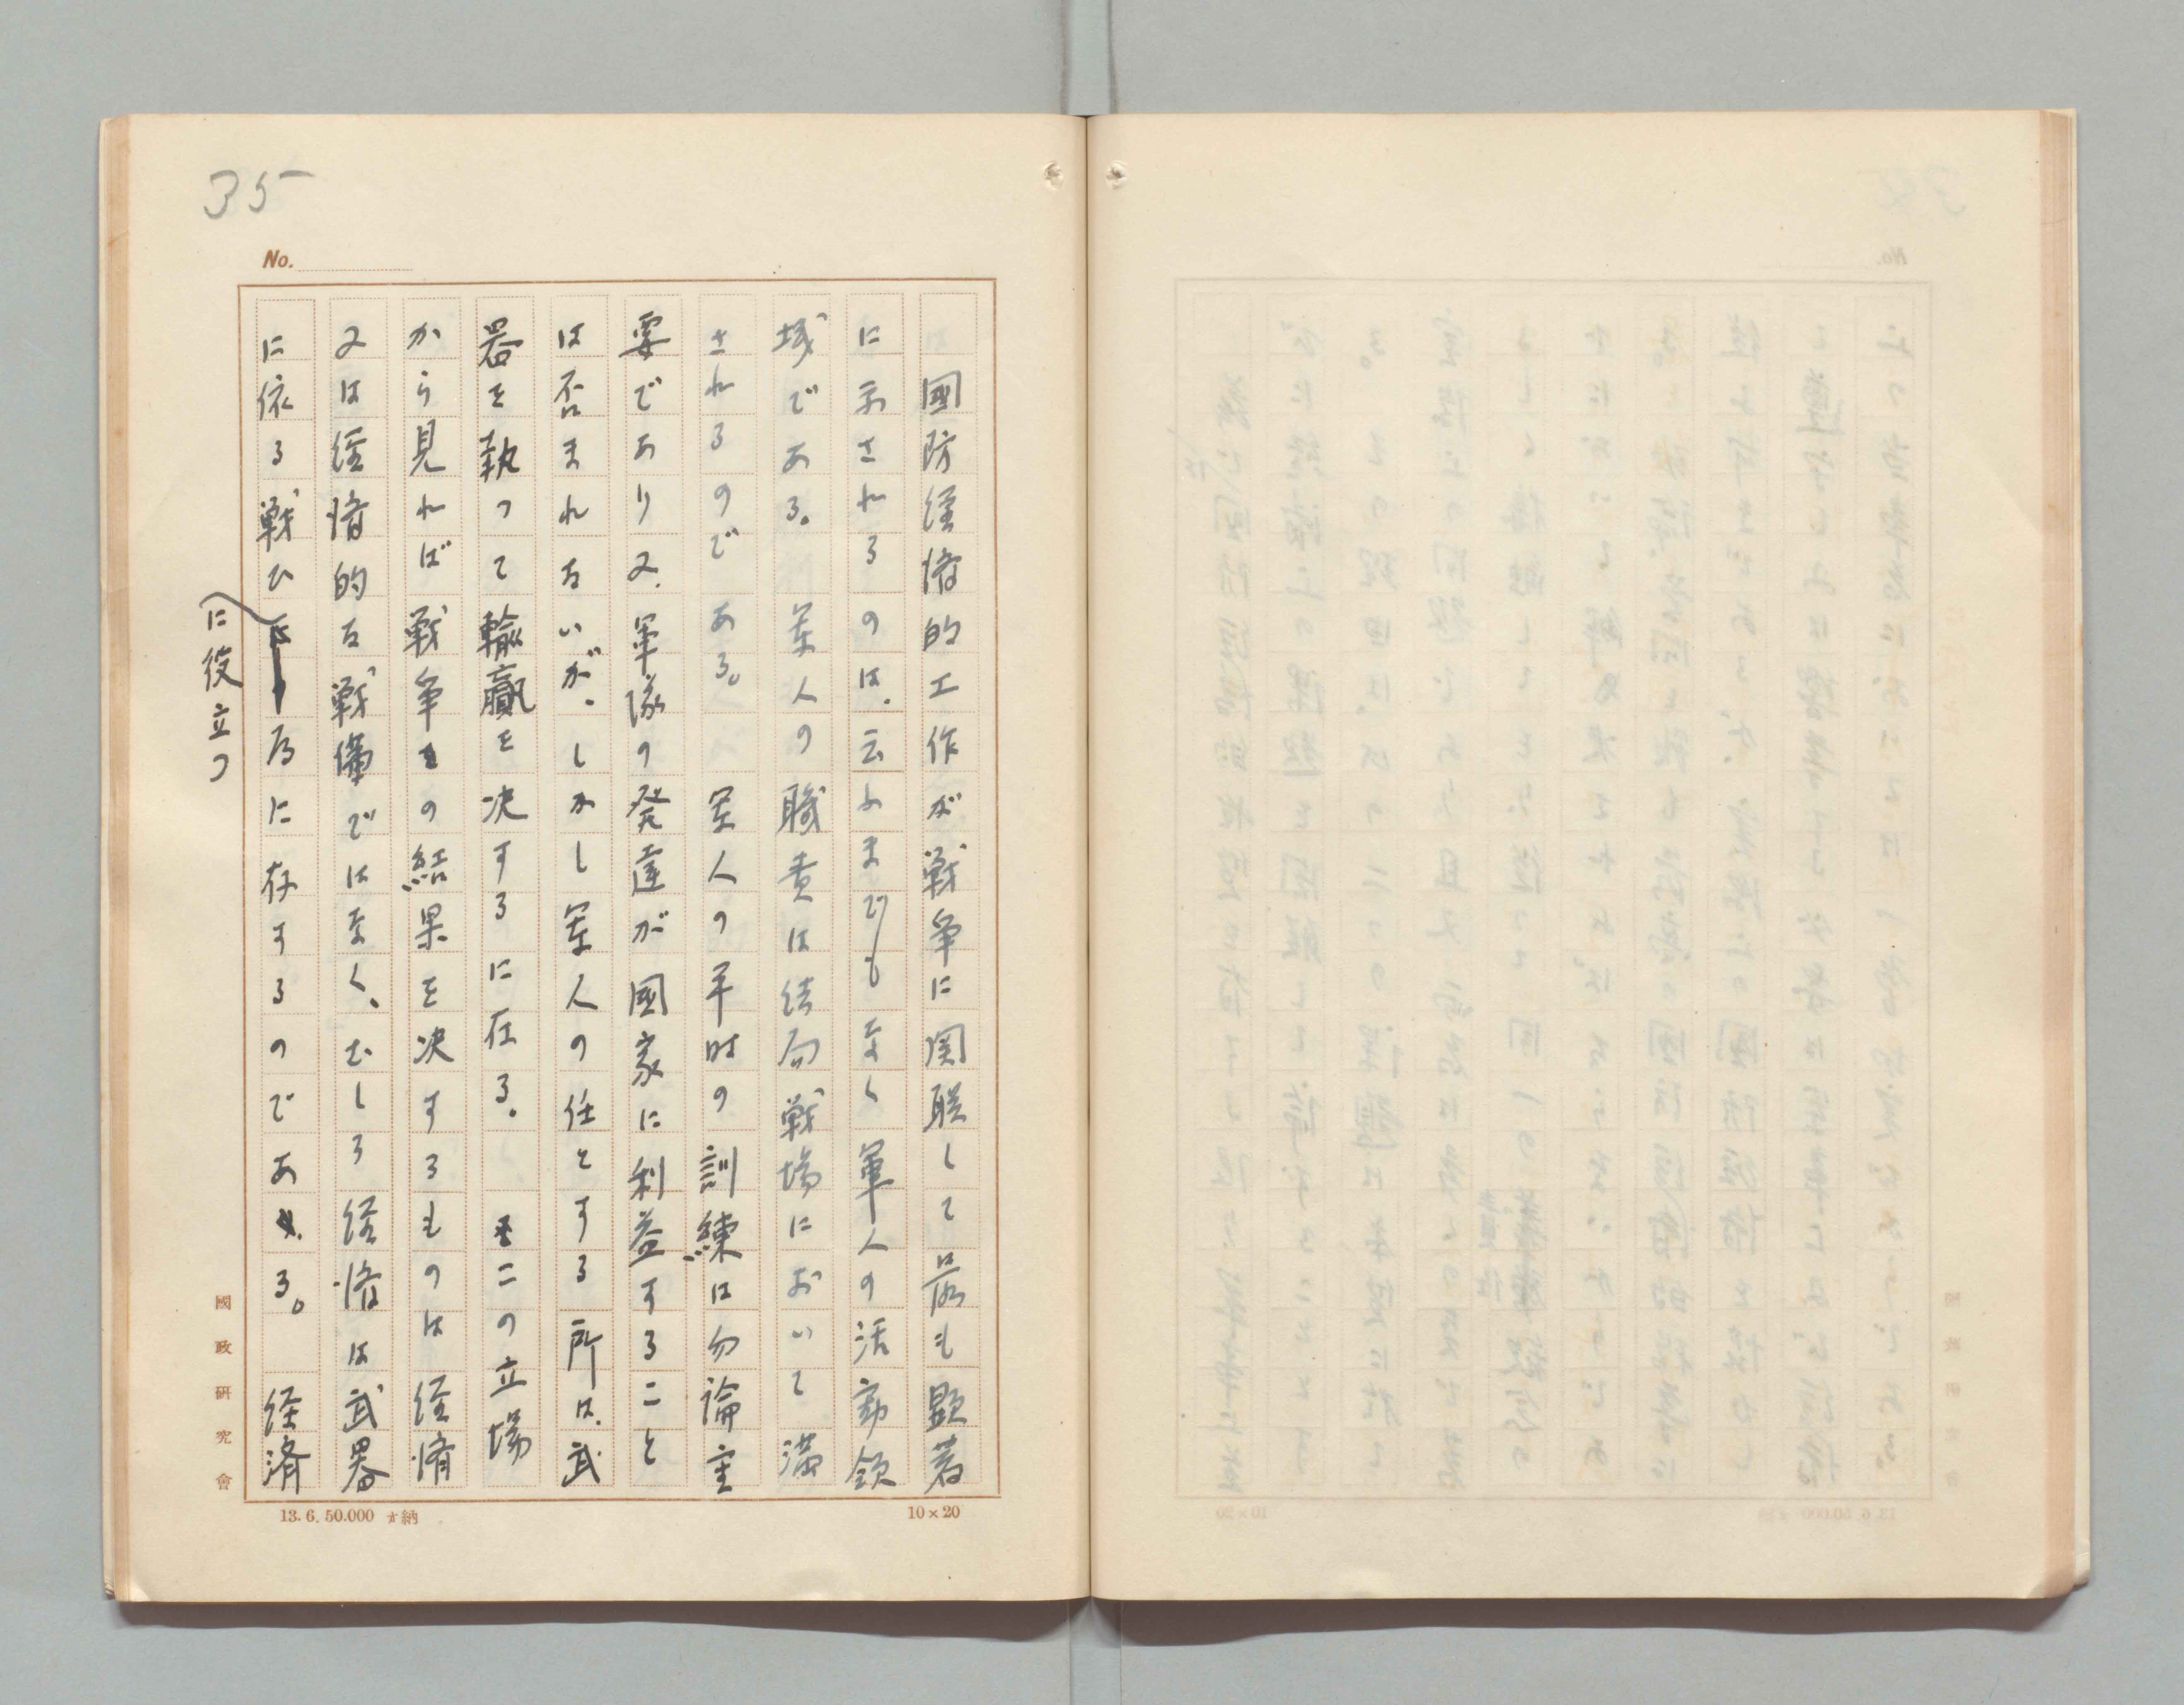 35
No.
國防経済的工作が戦争に関聯して最も顕著
に示されるのは、云ふまでもなく軍人の活動領
域である。軍人の職責は結局戦場において満
されるのである。軍人の平時の訓練は勿論重
要であり又、軍隊の発達が國家に利益すること
は否まれないが、しかし軍人の任とする所は、武
器を執つて輸贏を決するに在る。この立場
から見れば戦争の結果を決するものは経済
又は経済的な戦備ではなく、むしろ経済は武器
に依る戦ひに役立つ為に存するのである。経済
國政研究會
13.6.50.000 納
10×20